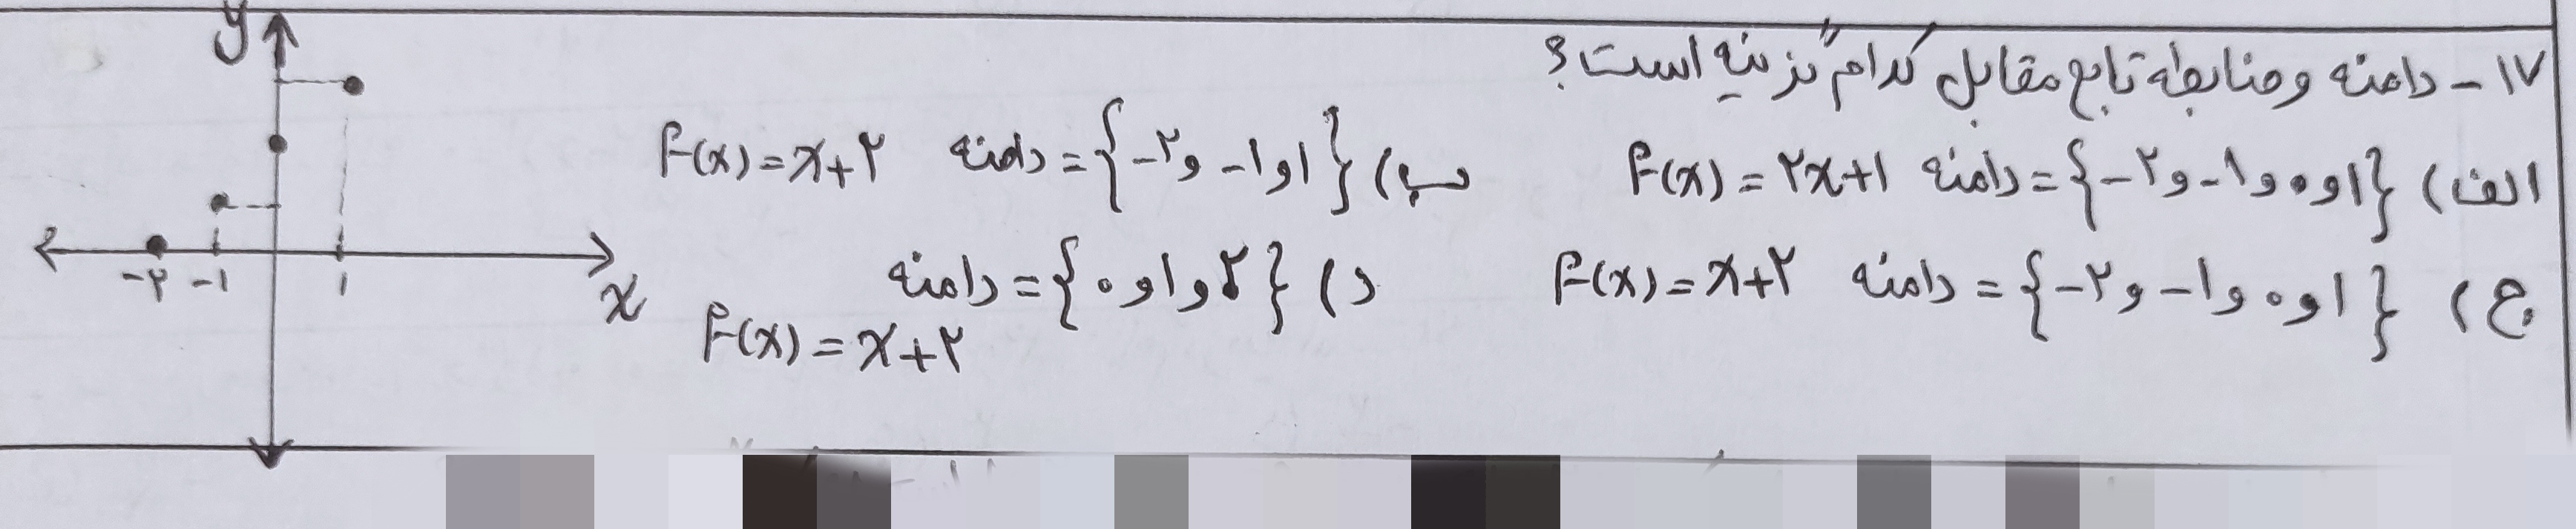 ۱۷- دامنه و ضابطه تابع مقابل کدام گزینه است؟
الف) {۱ و ۰ و ۱- و ۲-} = دامنه f(x) = ۲x+۱
ب) {۱ و ۱- و ۲-} = دامنه f(x) = x+۲
ج) {۱ و ۰ و ۱- و ۲-} = دامنه f(x) = x+۲
د) {۲ و ۱ و ۰} = دامنه
f(x) = x+۲
y
-۲ -۱ ۱
x